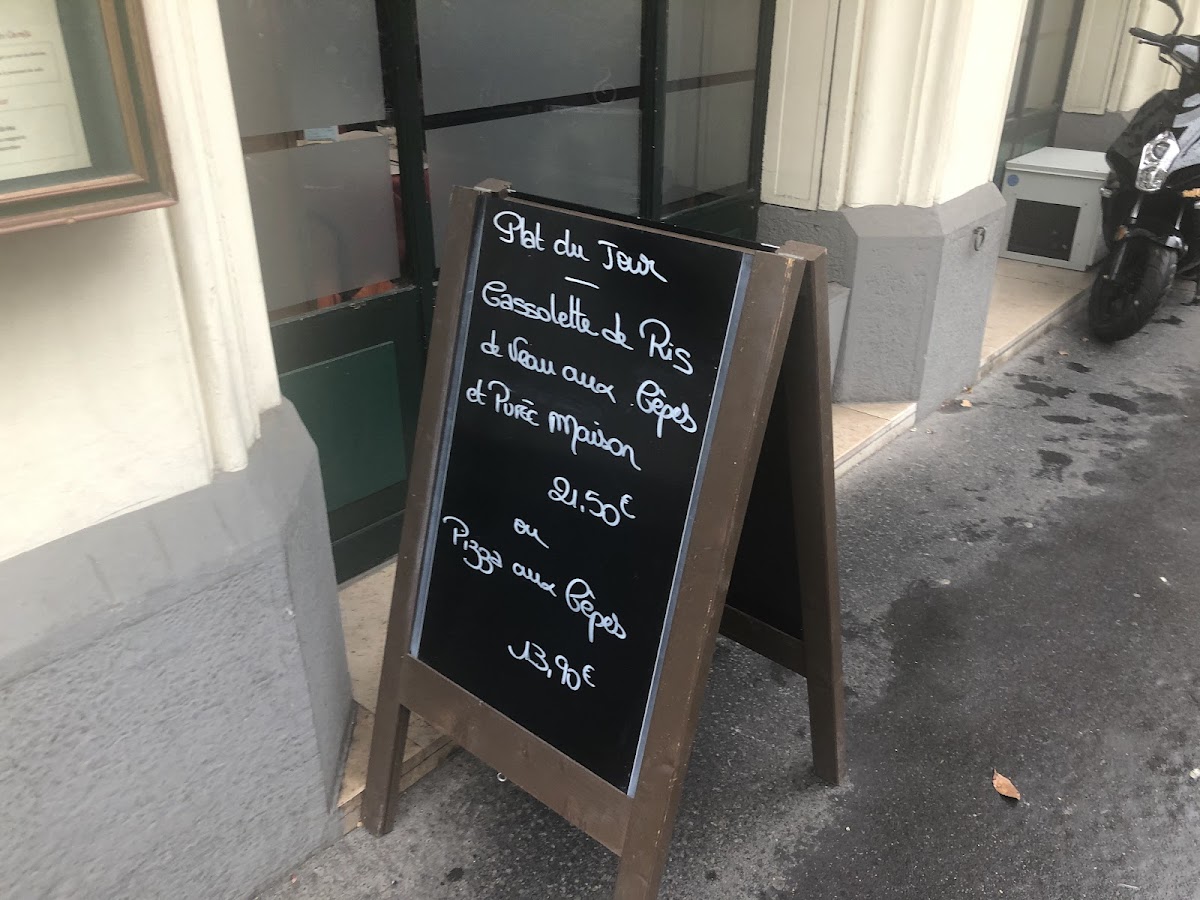 Plat du Jour
Cassolette de Ris
de Veau aux Cêpes
et Purée Maison
21,50€
ou
Pizza aux Cêpes
13,90€